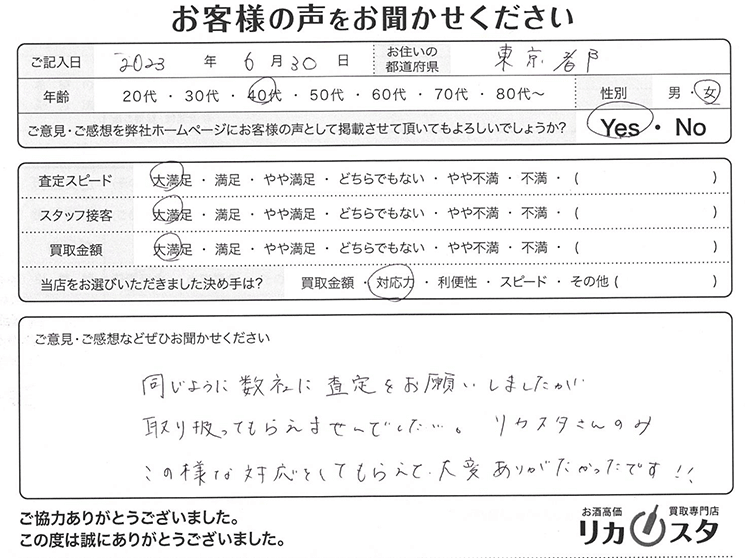 お客様の声をお聞かせください
ご記入日 2023 年 6 月 30 日 お住いの都道府県 東京都
年齢 20代 ・ 30代 ・ 40代 ・ 50代 ・ 60代 ・ 70代 ・ 80代〜 性別 男 ・ 女
ご意見・ご感想を弊社ホームページにお客様の声として掲載させて頂いてもよろしいでしょうか? Yes ・ No
査定スピード 大満足 ・ 満足 ・ やや満足 ・ どちらでもない ・ やや不満 ・ 不満 ・ ( )
スタッフ接客 大満足 ・ 満足 ・ やや満足 ・ どちらでもない ・ やや不満 ・ 不満 ・ ( )
買取金額 大満足 ・ 満足 ・ やや満足 ・ どちらでもない ・ やや不満 ・ 不満 ・ ( )
当店をお選びいただきました決め手は? 買取金額 ・ 対応力 ・ 利便性 ・ スピード ・ その他 ( )
ご意見・ご感想などぜひお聞かせください
同じように数社に査定をお願いしましたが
取り扱ってもらえませんでした…。 リカスタさんのみ
この様な対応をしてもらえて、大変ありがたかったです!!
ご協力ありがとうございました。
この度は誠にありがとうございました。
お酒高価 買取専門店
リカスタ